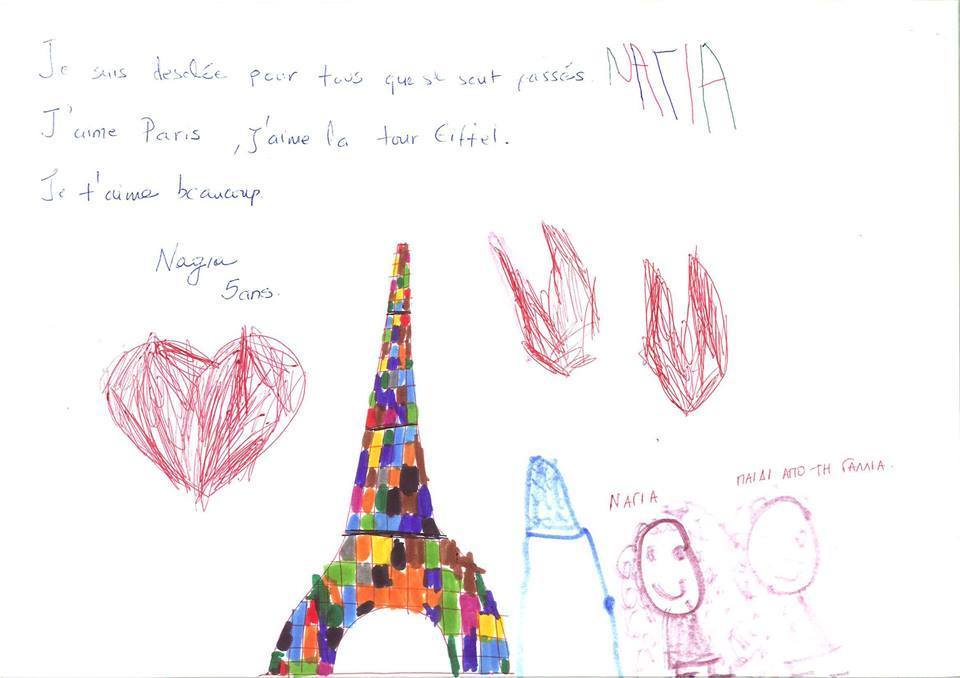 Je suis desolée pour tous que se sont passés. ΝΑΓΙΑ
J'aime Paris, j'aime la tour Eiffel.
Je t'aime beaucoup
Nagia
5ans.
ΝΑΓΙΑ
ΠΑΙΔΙ ΑΠΟ ΤΗ ΓΑΛΛΙΑ.